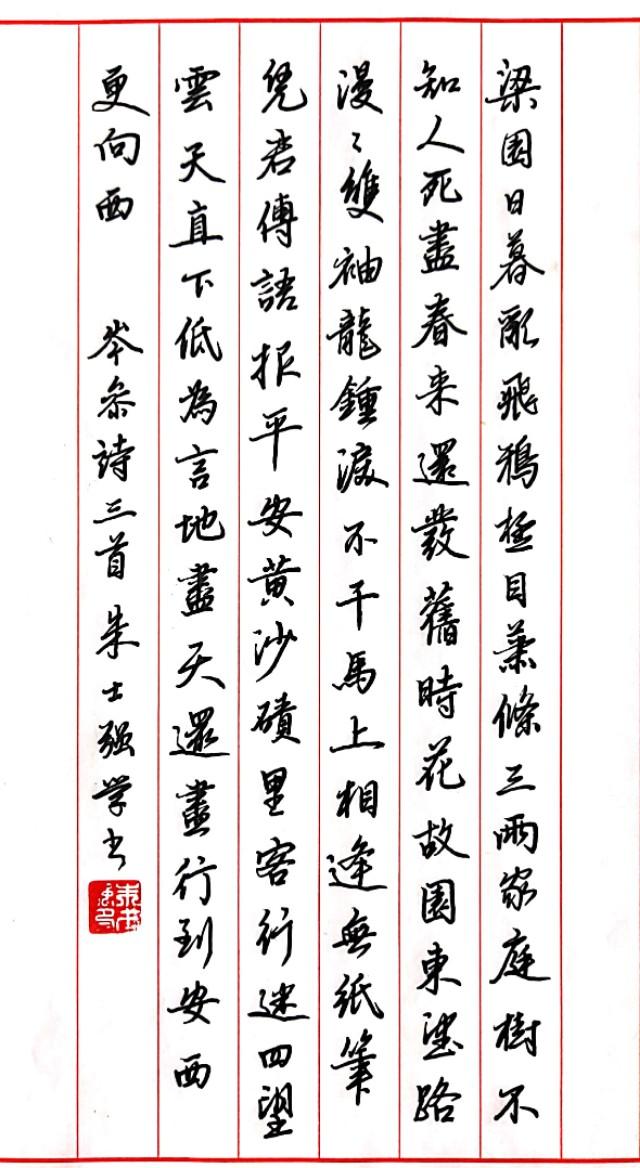 梁園日暮亂飛鴉極目蕭條三兩家庭樹不
知人死盡春来還發舊時花故園東望路
漫〻雙袖龍鍾淚不干馬上相逢無紙筆
凭君傳語报平安黄沙磧里客行迷四望
雲天直下低為言地盡天還盡行到安西
更向西 岑参詩三首朱士强学书